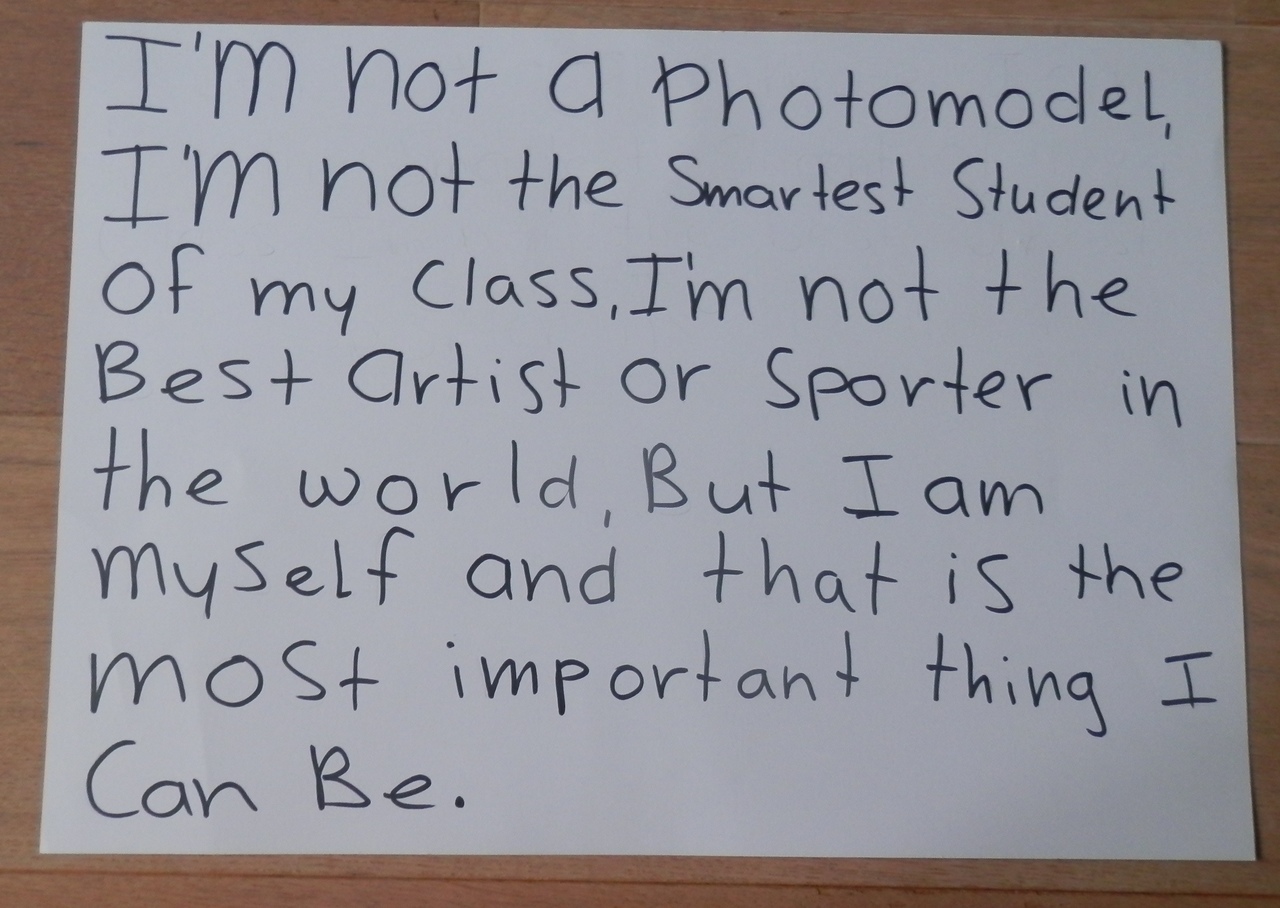 I'm not a Photomodel,
I'm not the Smartest Student
of my Class, I'm not the
Best artist or Sporter in
the world, But I am
myself and that is the
most important thing I
Can Be.